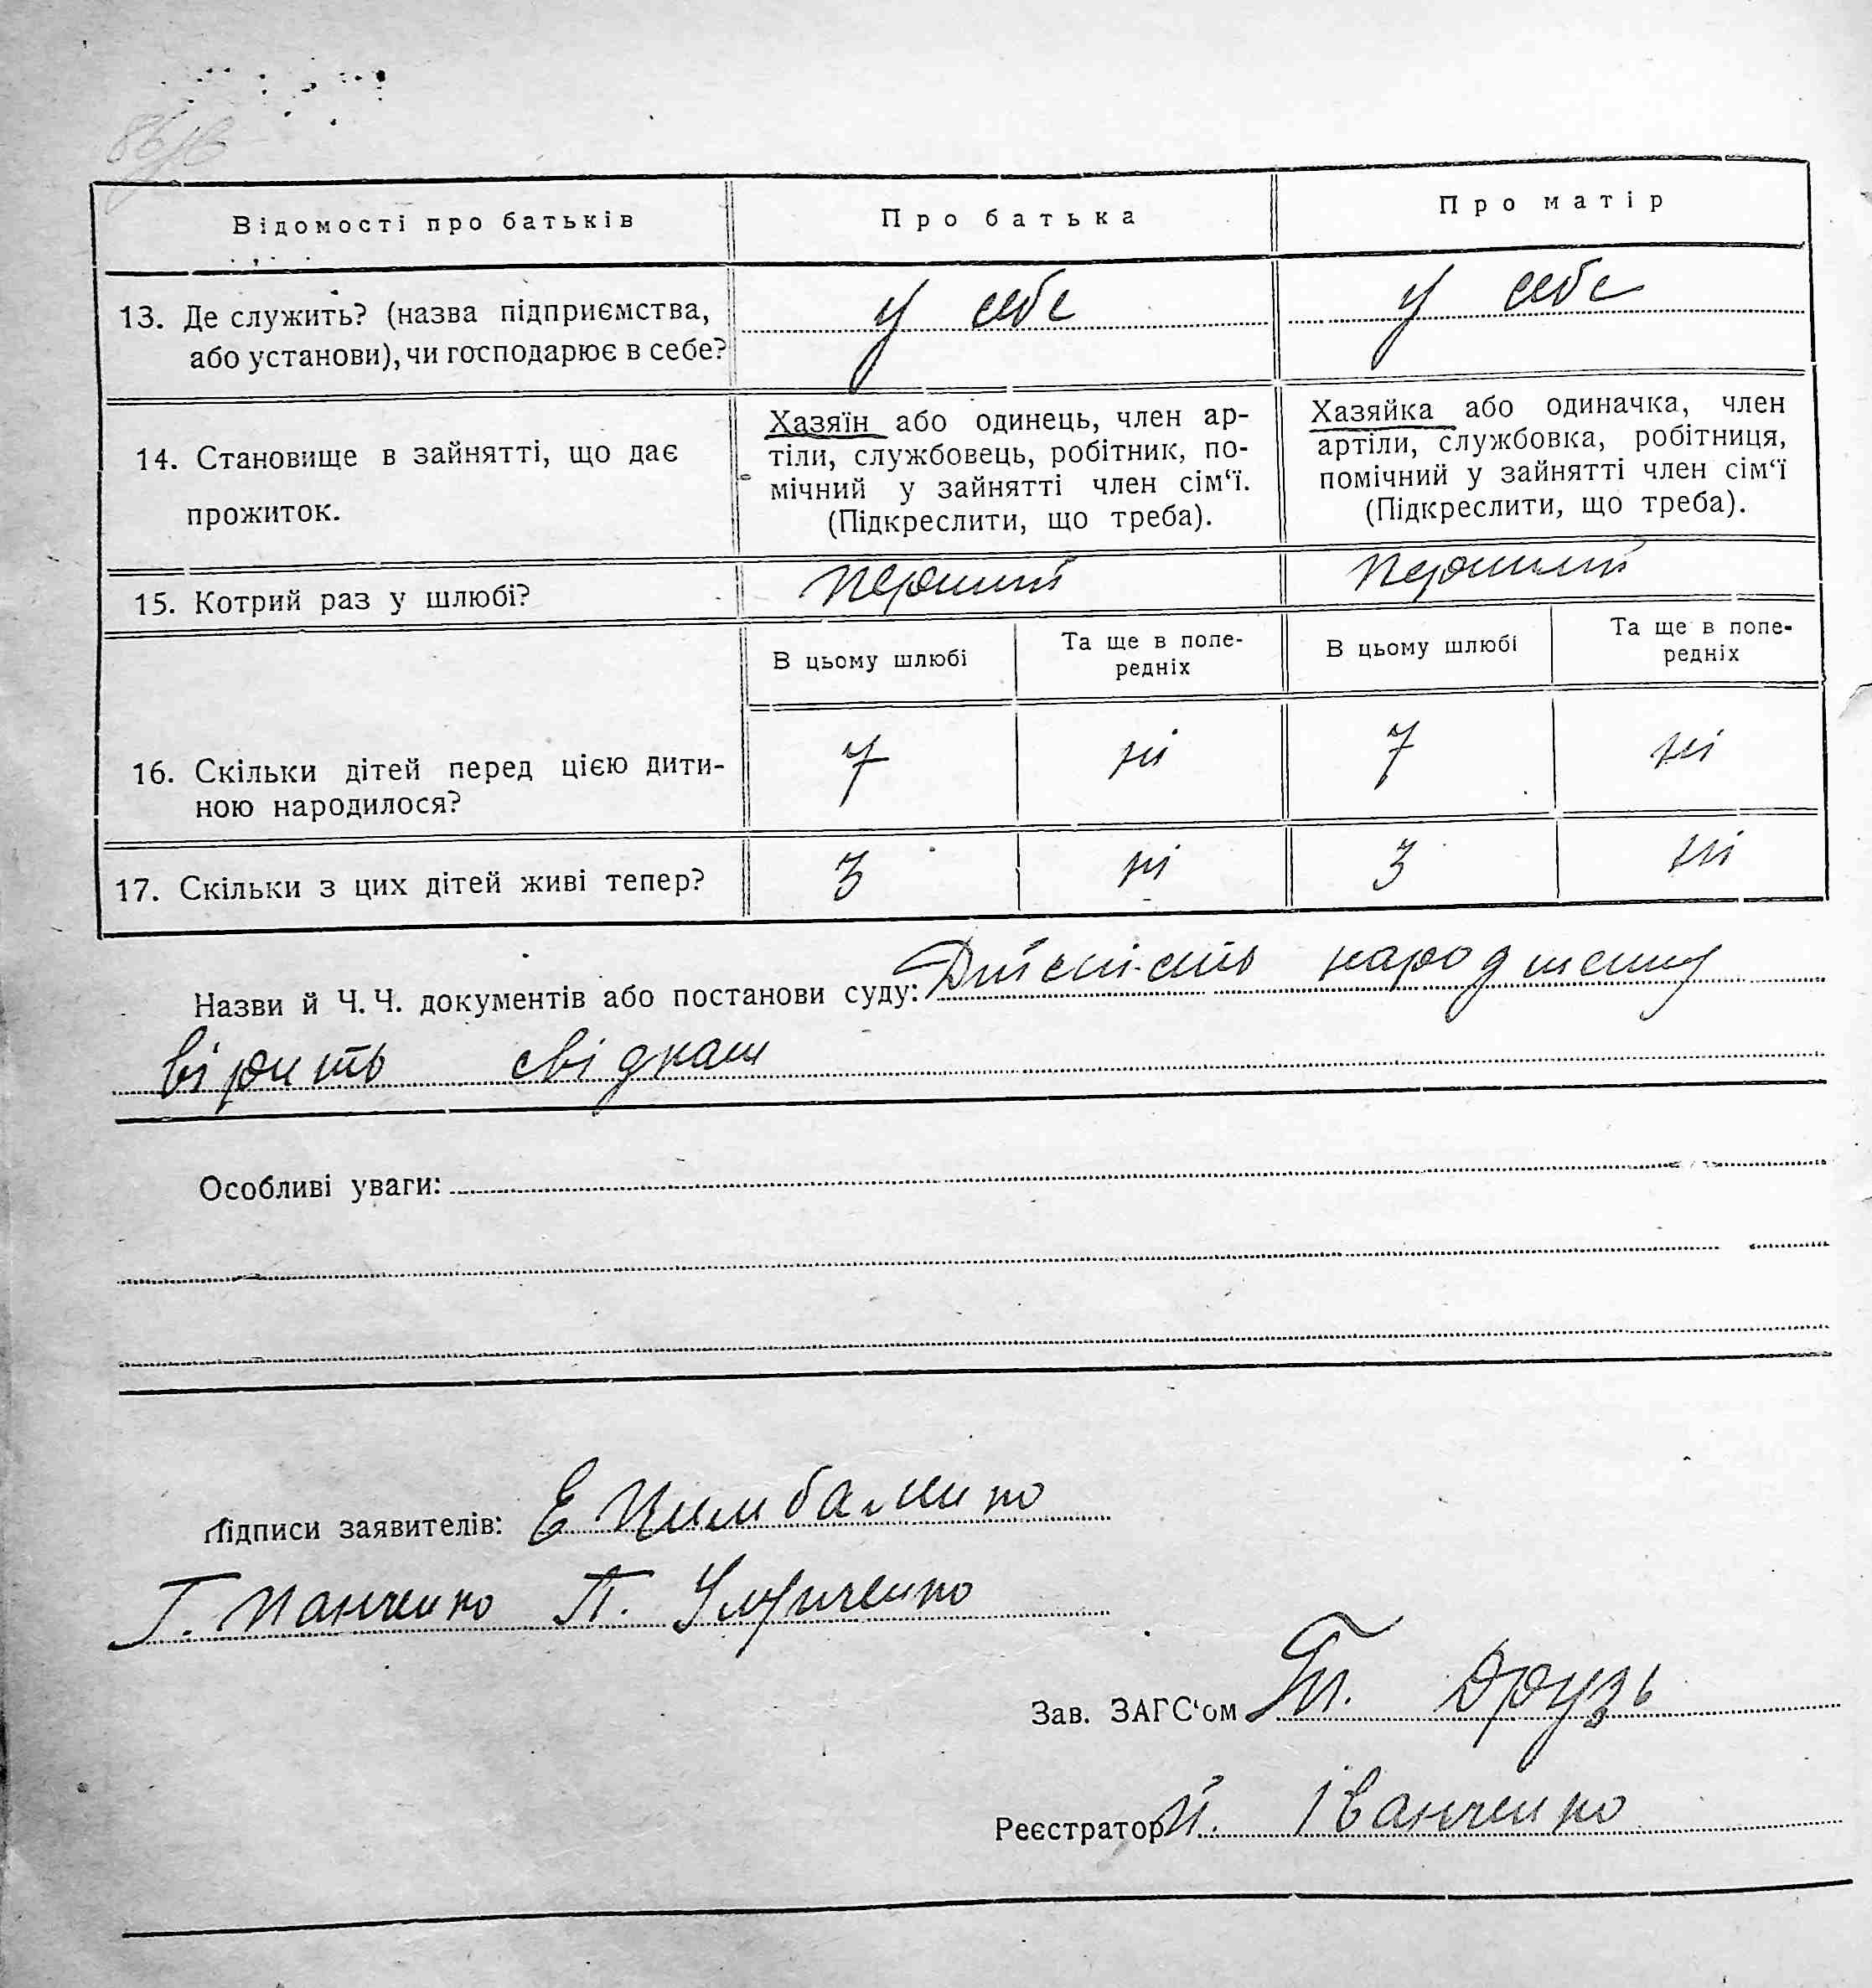 86/в
Відомості про батьків Про батька Про матір
13. Де служить? (назва підприємства, або установи), чи господарює в себе? у себе у себе
14. Становище в зайнятті, що дає прожиток.
Хазяїн або одинець, член ар-
тіли, службовець, робітник, по-
мічний у зайнятті член сім‘ї.
(Підкреслити, що треба).
Хазяйка або одиначка, член
артіли, службовка, робітниця,
помічний у зайнятті член сім‘ї
(Підкреслити, що треба).
15. Котрий раз у шлюбі? перший перший
В цьому шлюбі Та ще в попе-
редніх В цьому шлюбі Та ще в попе-
редніх
16. Скільки дітей перед цією дити-
ною народилося? 7 ні 7 ні
17. Скільки з цих дітей живі тепер? 3 ні 3 ні
Назви й Ч. Ч. документів або постанови суду: Дійсність народження
вірить свідкам
Особливі уваги:
Підписи заявителів: Е Цимбаленко
Г. Панченко П.
Зав. ЗАГС‘ом Гл. Друзь
Реєстратор Й. Іванченко